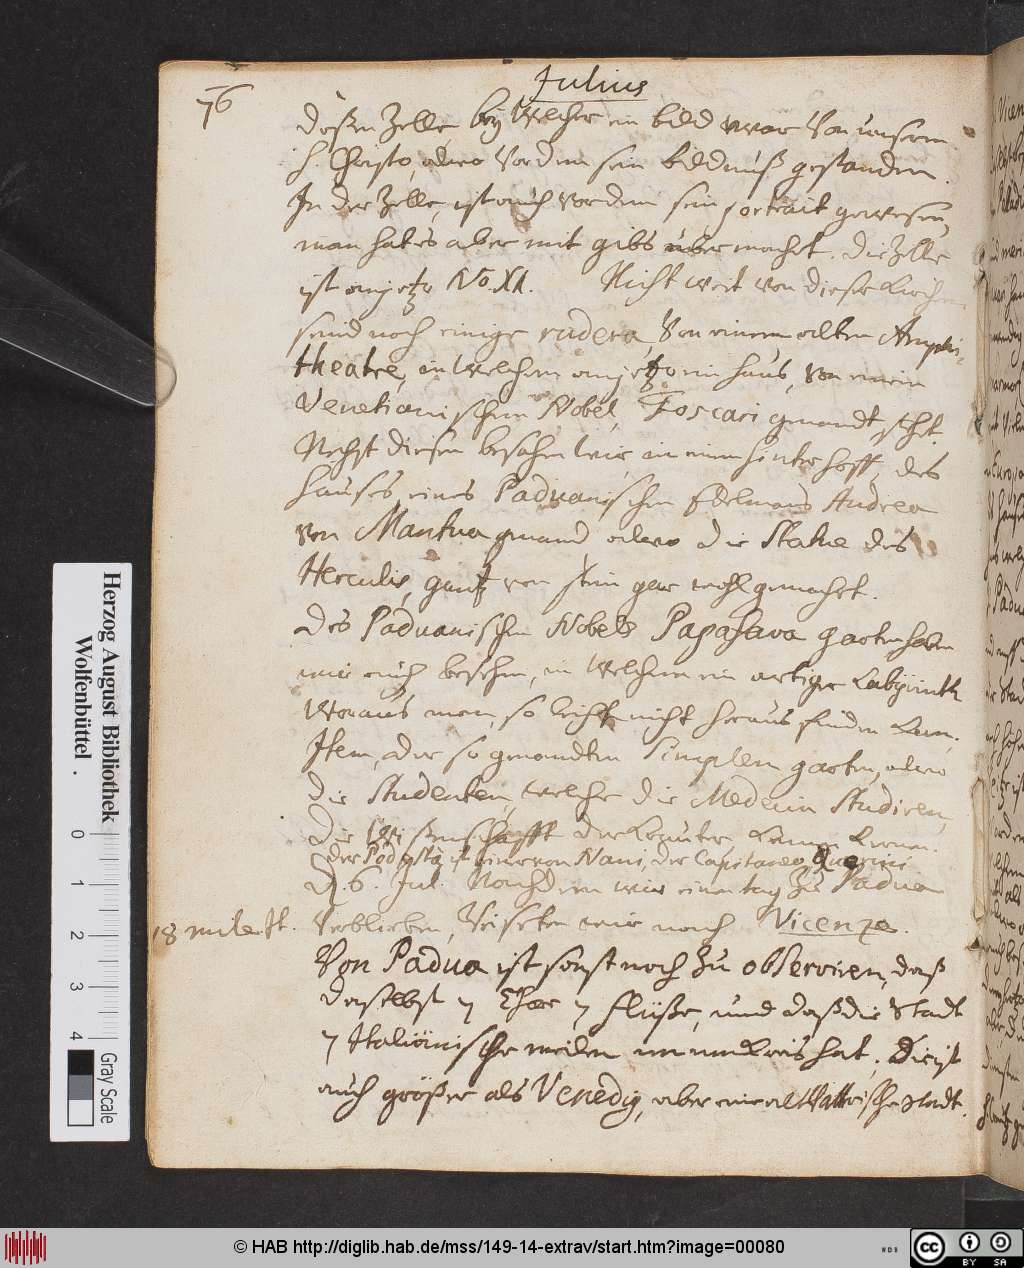 76
Julius
deßen Zelle, bey Welcher ein bild war Von unserm
H. Christo, alwo Vordem sein bildnuß gestanden.
In der Zelle, ist auch Vordem sein portrait gewesen,
man hat es aber mit gibs uber machet. Die Zelle
ist anjetzo No. XI. Nicht weit von dieser Kirchen
seind noch einige rudera, Von einem alten Amphi-
theatre, in Welchem anjetzo ein haus, von einem
Venetianischen Nobel, Foscari genandt, steht.
Nechst diesen besahen wir, in einem hinterhoff, des
hauses eines Paduanischen Edelmans Andrea
von Mantua genand alwo die Statue des
Herculis, gantz von stein gar wohl gemachet.
Des Paduanischen Nobels Papafava garten haben
wir auch besehen, in Welchem ein artiger Labÿrinth
Woraus man, so leicht nicht heraus finden kan,
Item, der so genandten Simplen garten, alwo
die Studenten, welche die Medecin Studiren,
die Wissenschafft der Kräuter, kennen Lernen.
der Podesta ist einer von Nani, der Capitaneo Querini
D. 6. Jul. Nachdem wir einen tag Zu Padua
18 meile It. Verblieben, Reiseten wir nach Vicenza.
Von Padua ist sonst noch Zu observiren, daß
daselbst 7 Thor, 7 flüße, und daß die Stadt
7 Italiänische meilen im umkreis hat. Die ist
auch größer als Venedig, aber eine alt Stadt.
Herzog August Bibliothek
Wolfenbüttel.
0 1 2 3 4
Gray Scale
© HAB http://diglib.hab.de/mss/149-14-extrav/start.htm?image=00080
WDB
CC BY SA